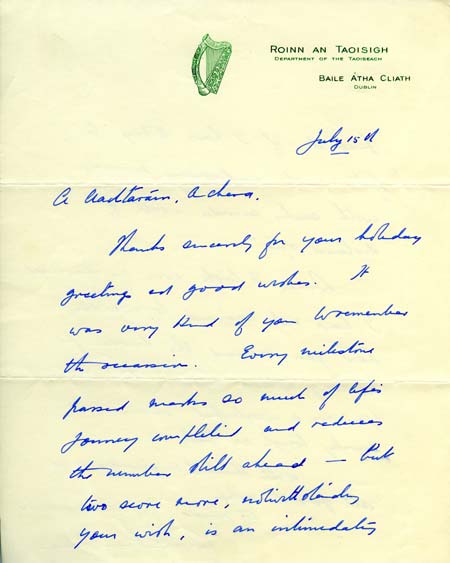 ROINN AN TAOISIGH
DEPARTMENT OF THE TAOISEACH
BAILE ÁTHA CLIATH
DUBLIN
July 15th
A Uachtaráin, A Chara,
Thanks sincerely for your holiday
greetings and good wishes. It
was very kind of you to remember
the occasion. Every milestone
passed marks so much of life's
journey completed and reduces
the number still ahead — But
two score more, notwithstanding
your wish, is an intimidating